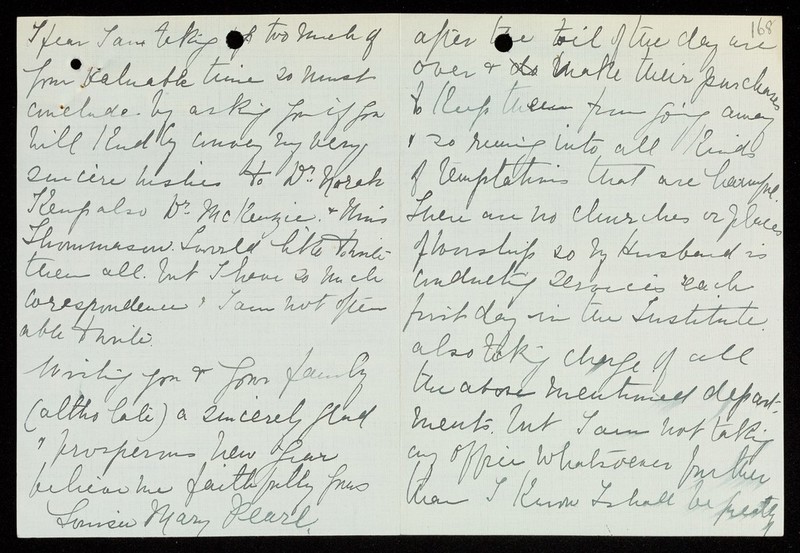 I fear I am taking up too much of
your valuable time so must
conclude by asking you if you
will kindly convey my very
sincere wishes to Dr. Norah
Kemp also Dr. McKenzie. & Miss
Thommason. I would like to write
them all. but I have so much
corespondence & I am not often
able to write.
Wishing you & your family
(altho late) a sincerely glad
& prosperous New Year
believe me faithfully yours
Louisa Mary Pearl.
168
after the toil of the day are
over & to make their purchases
to keep them from going away
& so runing into all kinds
of temptations that are harmful.
There are no churches or places
of worship so my Husband is
conducting services each
first day in the Institute.
also taking charge of all
the above mentioned depart-
ments. but I am not taking
any office whatsoever further
than I know I shall be pretty